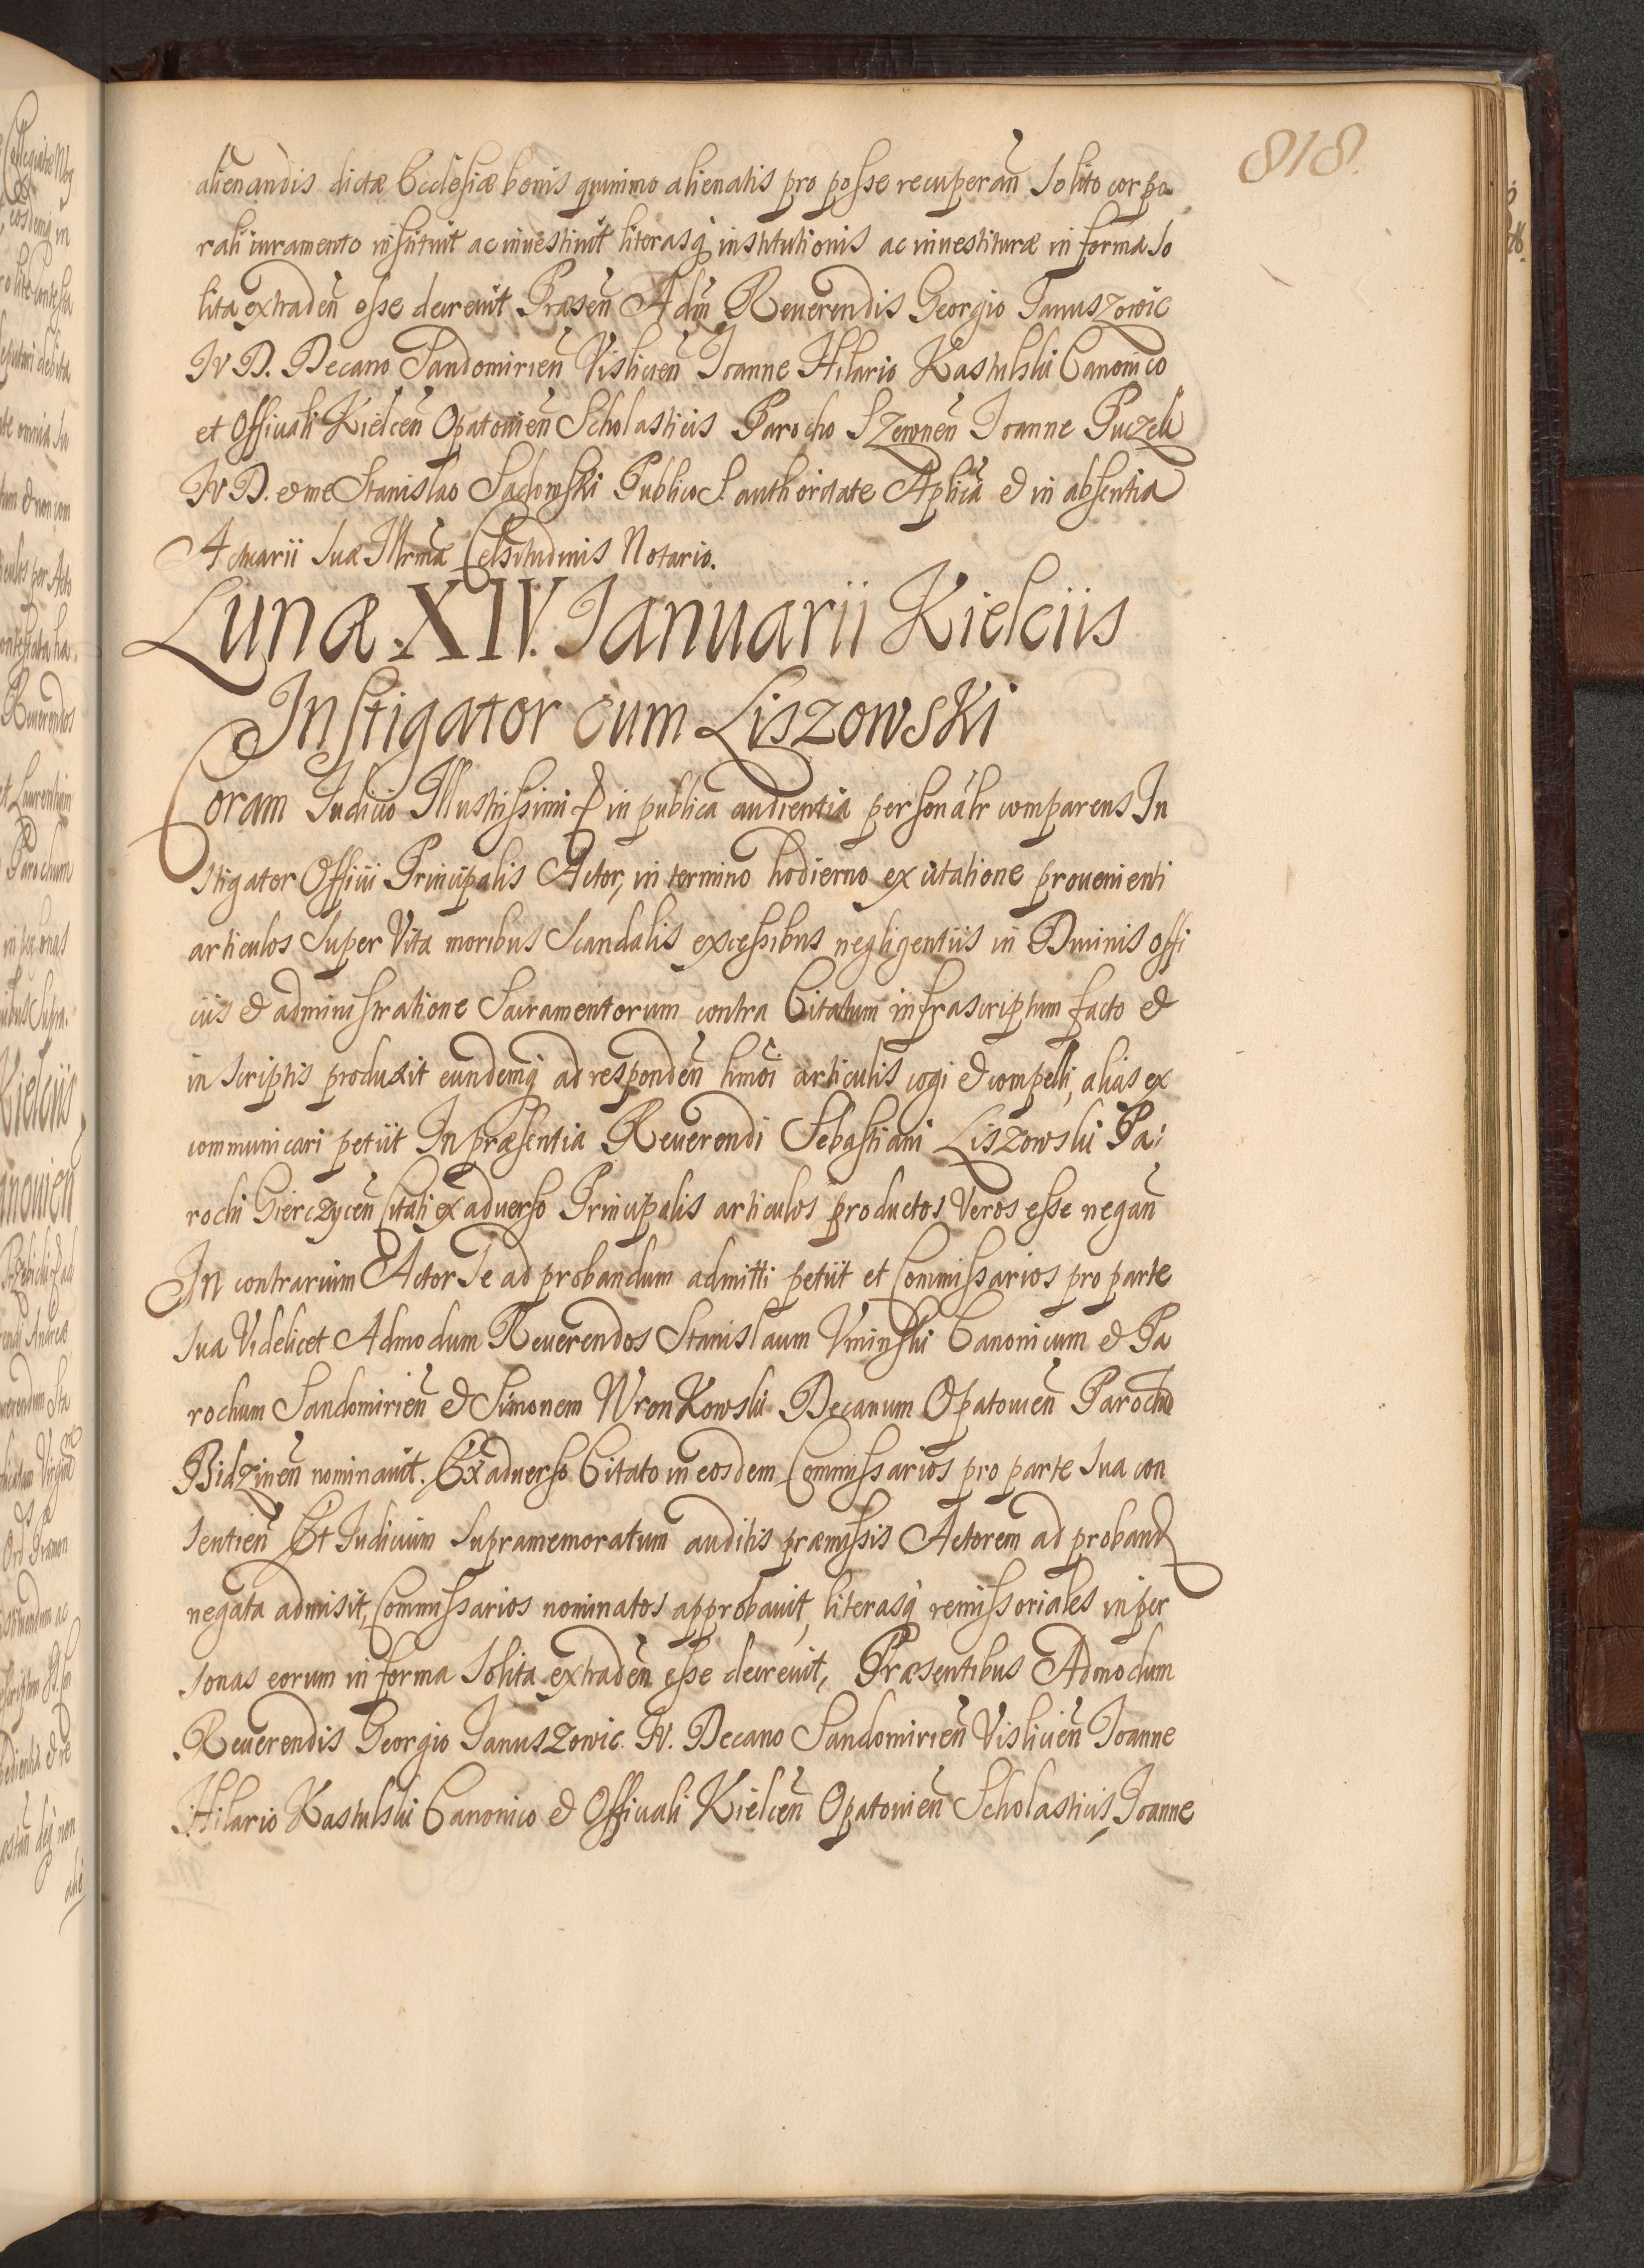 818.
alienandis dictæ Ecclesiæ bonis quinimo alienatis pro posse recuperan̄ solito corpo
rali iuramento instituit ac inuestiuit literasq́ institutionis ac inuestituræ in forma so
lita extraden̄ esse decreuit Præsen̄ Adm̄ Reuerendis Georgio Januszowic
IVD. Decano Sandomirien̄ Vislicien̄ Joanne Hilario Kastulski Canonico
et Officiali Kielcen̄ Opatouien̄ Scholasticis Parocho Szewnen̄ Joanne Puczek
IVD. & me Stanislao Sadowski Publico S. authoritate Aplicā & in absentia
Actuarii suæ Illrmæ Celsitudinis Notario.
Lunæ XIV. Ianuarii Kielciis
Instigator cum Liszowski
Coram Judicio Illustrissimi & in publica audientia personalr̄ comparens In
stigator Officii Principalis Actor, in termino hodierno ex citatione prouenienti
articulos super Vita moribus Scandalis excessibus negligentiis in Diuinis offi
ciis & administratione Sacramentorum contra Citatum infrascriptum facto &
in scriptis produxit eundemq́ ad responden̄ hmōi articulis cogi & compelli, alias ex
communicari petiit In præsentia Reuerendi Sebastiani Liszowski Pa:
rochi Gierczycen̄ Citati ex aduerso Principalis articulos productos Veros esse negan̄
In contrarium Actor se ad probandum admitti petiit et Commissarios pro parte
sua Videlicet Admodum Reuerendos Stanislaum Vminski Canonicum & Pa
rochum Sandomirien̄ & Simonem Wronkowski Decanum Opatouien̄ Parochū
Bidzinen̄ nominauit. Ex aduerso Citato in eosdem Commissarios pro parte sua con
sentien̄ Et Judicium supramemoratum auditis præmissis Actorem ad proband
negata admisit, Commissarios nominatos approbauit, literasq́ remissoriales in per
sonas eorum in forma solita extraden̄ esse decreuit, Præsentibus Admodum
Reuerendis Georgio Januszowic. IV. Decano Sandomirien̄ Vislicien̄ Joanne
Hilario Kastulski Canonico & Officiali Kielcen̄ Opatouien̄ Scholasticis, Joanne